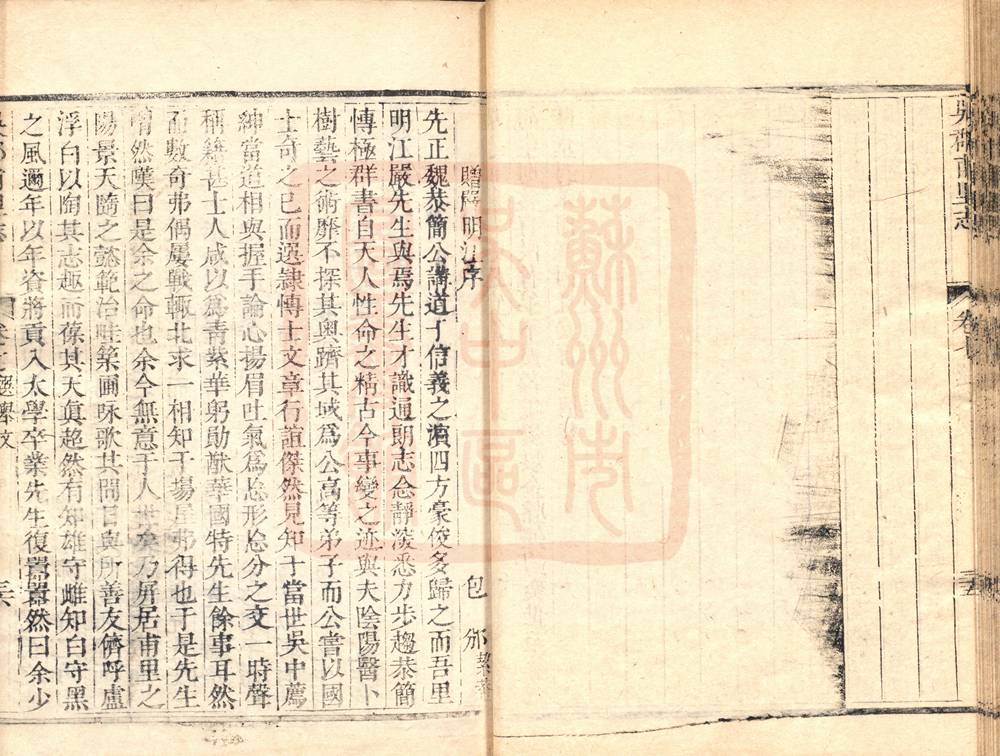 吳郡甫里志
卷七
贈嚴明江序
包 𣲖
先正魏恭簡公講道于信義之濱四方豪俊多歸之而吾里
明江嚴先生與焉先生才識通朗志念靜淡悉力步趨恭簡
慱極群書自天人性命之精古今事變之迹與夫陰陽醫卜
樹藝之術靡不探其奧躋其域爲公高等弟子而公嘗以國
士奇之已而選隷慱士文章行誼傑然見知于當世吳中薦
紳當道相與握手論心揚眉吐氣爲忘形忘分之交一時聲
稱籍甚士人咸以爲青紫華躬勛猷華國特先生餘事耳然
而數奇弗偶屢戰輒北求一相知于場屋弗得也于是先生
喟然嘆曰是余之命也余今無意于人世矣乃屏居甫里之
陽景天隨之懿範治畦築圃咏歌其間日與所善友儕呼盧
浮白以陶其志趣而葆其天眞超然有知雄守雌知白守黑
之風邇年以年資將貢入太學卒業先生復囂囂然曰余少